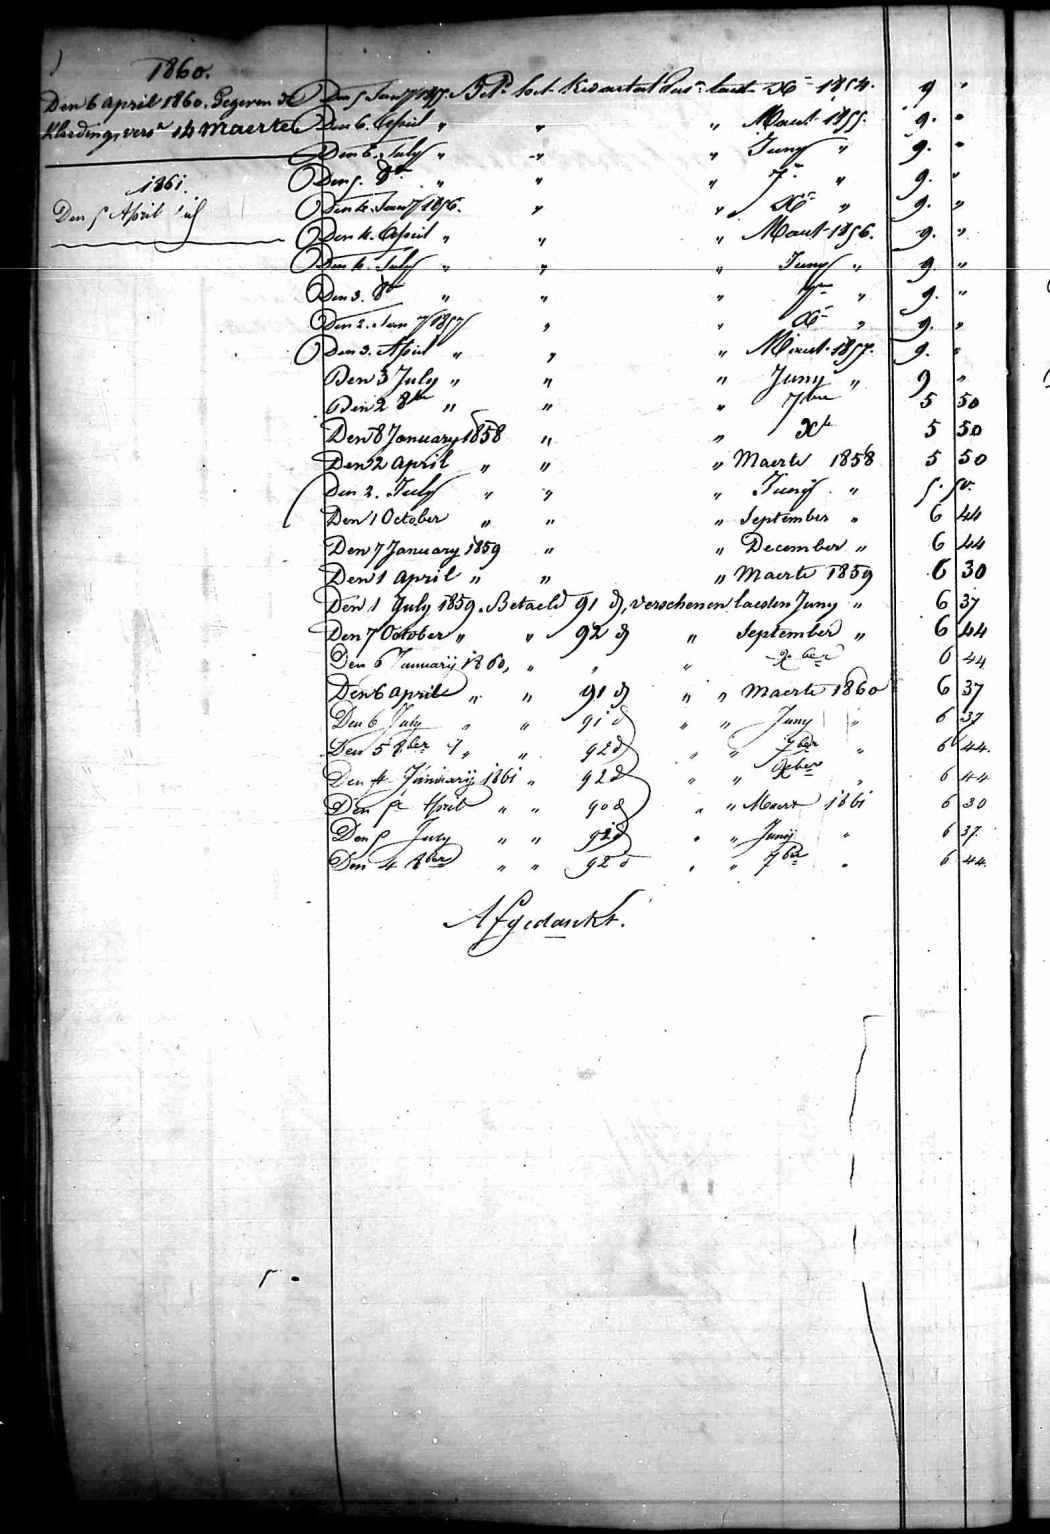 1860.
Den 6 April 1860. Gegeven de
Kleeding, vers.n 14 Maerte
1861.
Den 5 April id
Den 5 Jany 1855. Bet.d het Kwartaal vers.n laest Xr 1854. 9 "
Den 6. April " " " Maart 1855. 9. "
Den 6. July " " " Juny " 9. "
Den 5. 8r " " " 7r " 9. "
Den 4. Jany 1856. " " Xr " 9. "
Den 4. April " " " Maart 1856. 9. "
Den 4. July " " " Juny " 9. "
Den 3. 8r " " " 7re " 9. "
Den 2. Jany 1857 " " Xr " 9. "
Den 3. April " " " Maart 1857. 9. "
Den 3 July " " " Juny " 9 "
Den 2 8bre " " " 7bre 5 50
Den 8 January 1858 " " Xbr 5 50
Den 2 April " " " Maerte 1858 5 50
Den 2. July " " " Junij " 5. 50.
Den 1 October " " " September " 6 44
Den 7 January 1859 " " December " 6 44
Den 1 April " " " Maerte 1859 6 30
Den 1 July 1859. Betaeld 91 d, verschenen laesten Juny " 6 37
Den 7 October " " 92 d " September " 6 44
Den 6 Januarij 1860, " " " Xber 6 44
Den 6 april " " 91 d " " Maerte 1860 6 37
Den 6 July " " 91 d " " Juny " 6 37
Den 5 8ber " " 92 d " " 7ber " 6 44.
Den 4 Januarij 1861 " 92 d " " Xber " 6 44
Den 5e April " " 90 d " " Maert 1861 6 30
Den 5 July " " 91 d " " Junij " 6 37.
Den 4 8ber " " 92 d " " 7ber " 6 44.
Afgedankt.